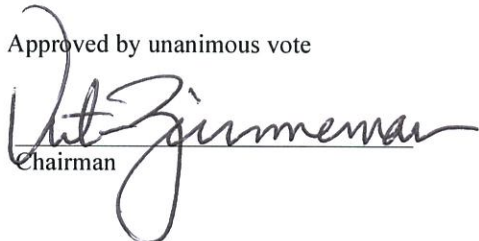 Approved by unanimous vote
Zimmerman
Chairman